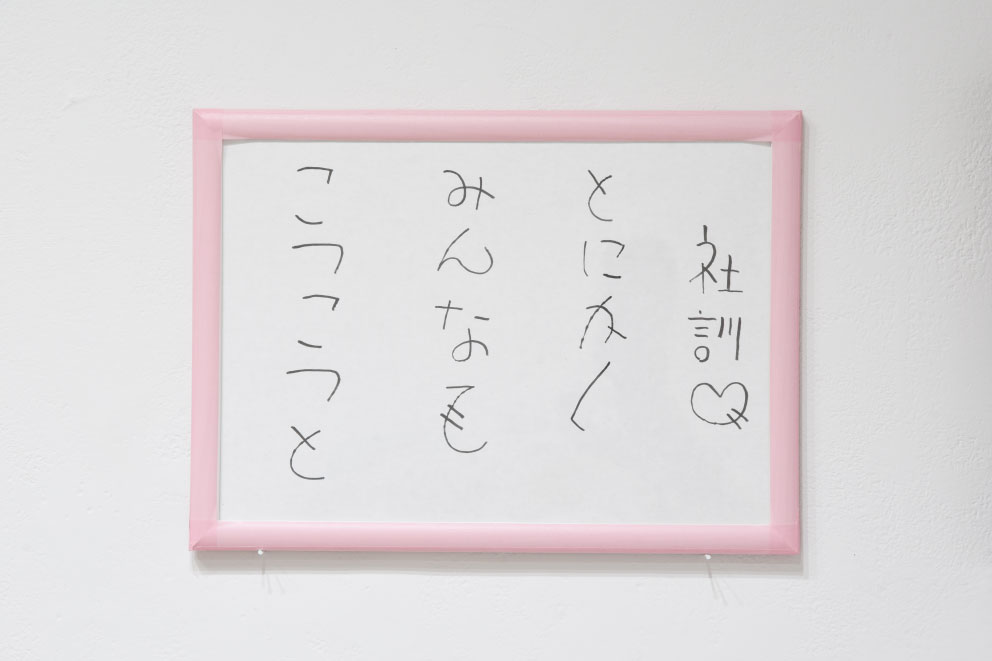 社訓♡
とにかく
みんなで
こつこつと